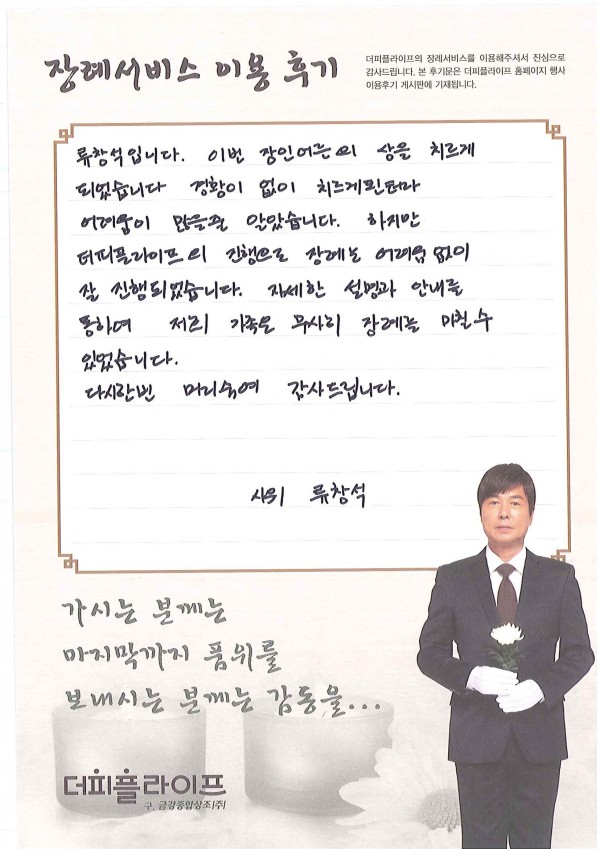 장례서비스 이용 후기
더피플라이프의 장례서비스를 이용해주셔서 진심으로
감사드립니다. 본 후기문은 더피플라이프 홈페이지 행사
이용후기 게시판에 기재됩니다.
류창석입니다. 이번 장인어른의 상을 치르게
되었습니다 경황이 없이 치르게된터라
어려움이 많을줄 알았습니다. 하지만
더피플라이프의 진행으로 장례는 어려움 없이
잘 진행되었습니다. 자세한 설명과 안내를
통하여 저희 가족은 무사히 장례를 마칠 수
있었습니다.
다시한번 머리숙여 감사드립니다.
사위 류창석
가시는 분께는
마지막까지 품위를
보내시는 분께는 감동을...
더피플라이프
구. 금강종합상조(주)